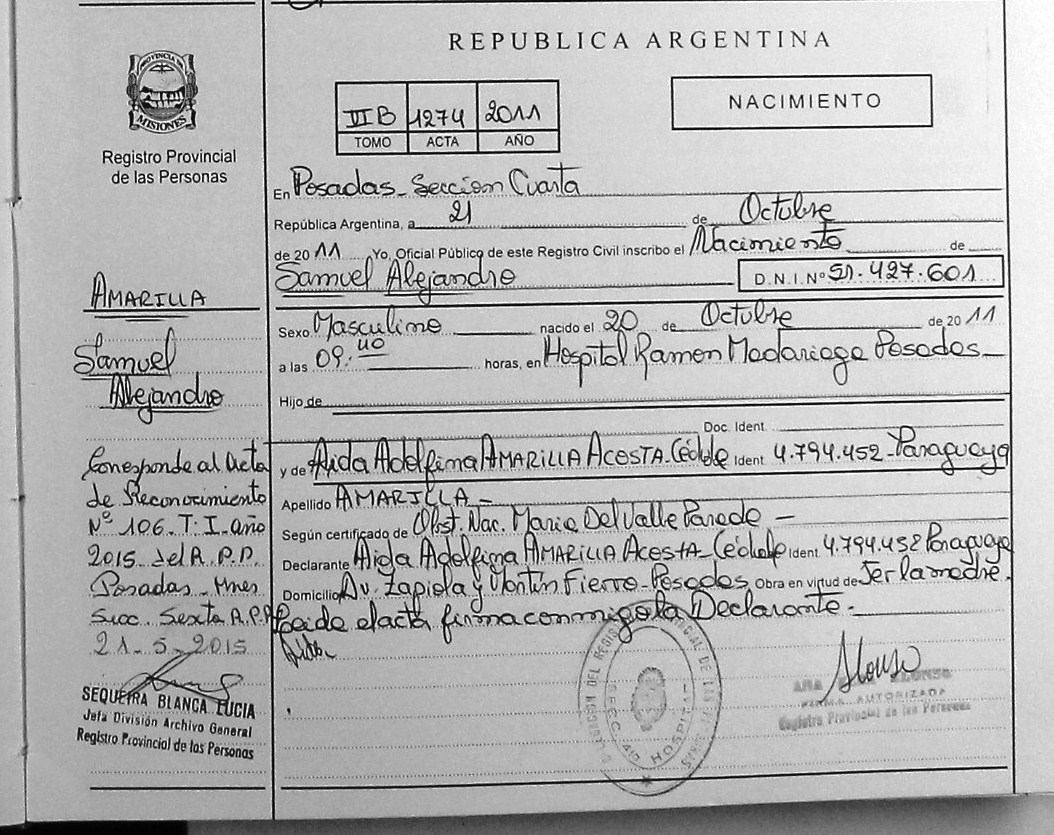 REPUBLICA ARGENTINA
PROVINCIA DE
MISIONES
Registro Provincial
de las Personas
III B 1274 2011
TOMO ACTA AÑO
NACIMIENTO
En Posadas - Seccion Cuarta
República Argentina, a 21 de Octubre
de 2011 Yo, Oficial Público de este Registro Civil inscribo el Nacimiento de
Samuel Alejandro D.N.I.Nº 51.427.601
Sexo Masculino nacido el 20 de Octubre de 2011
a las 09:40 horas, en Hospital Ramon Madariaga Posadas
Hijo de
Doc. Ident.
y de Aida Adelfina AMARILLA ACOSTA - Cédula Ident. 4.794.452 - Paraguaya
Apellido AMARILLA -
Según certificado de Obst. Nac. Maria Del Valle Parede -
Declarante Aida Adelfina AMARILLA ACOSTA - Cédula Ident. 4.794.452 Paraguaya
Domicilio Av. Zapiola y Martin Fierro - Posadas Obra en virtud de Ser la madre.
Leida el acta firma conmigo la Declarante.-
AMARILLA
Samuel
Alejandro
Corresponde al Acta
de Reconocimiento
Nº 106. T: I. año
2015 del R.P.P.
Posadas - Mnes
Succ. Sexta R.P.P.
21-5-2015
SEQUEIRA BLANCA LUCIA
Jefa División Archivo General
Registro Provincial de las Personas
Alonso
ANA ALONSO
FIRMA AUTORIZADA
Registro Provincial de las Personas
HOSPITAL